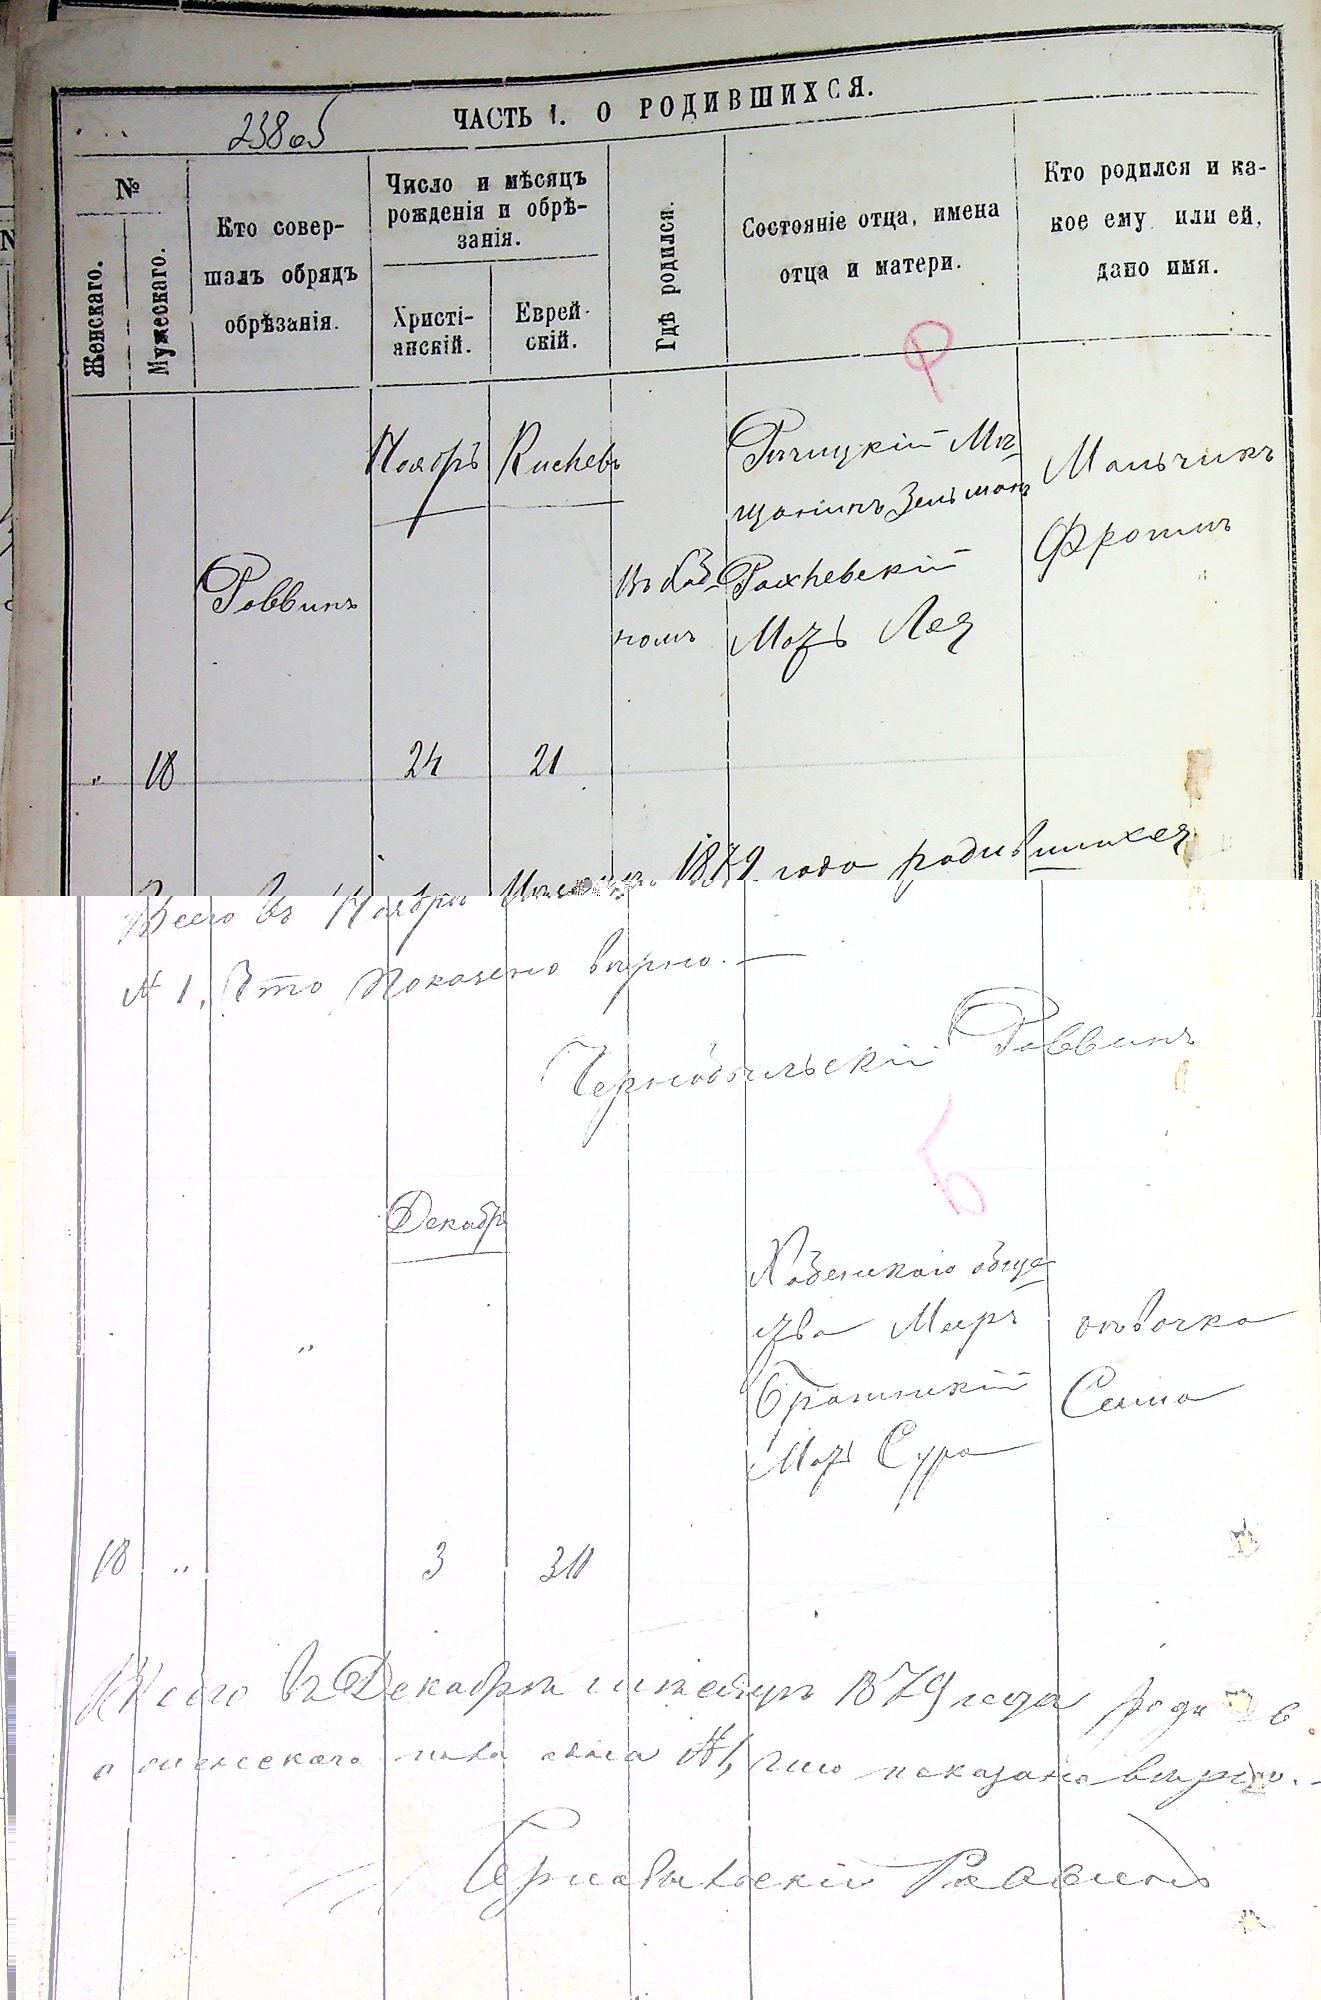 238 об
ЧАСТЬ I. О РОДИВШИХСЯ.
№
Женскаго.
Мужескаго.
Кто совер-
шалъ обрядъ
обрѣзанія.
Число и мѣсяцъ
рожденія и обрѣ-
занія.
Христі-
анскій.
Еврей-
скій.
Гдѣ родился.
Состояніе отца, имена
отца и матери.
Кто родился и ка-
кое ему или ей,
дано имя.
Р
„
18
Раввинъ
Ноябрь
24
Кислевъ
21
Рѣчицкій Мѣ-
щанинъ Зельманъ
Рахневскій
Мать Лея
Мальчикъ
Фроимъ
Всего въ Ноябрѣ Мѣсяцѣ 1879 года родившихся
№ 1, Что Показано вѣрно.—
Чернобыльскій Раввинъ
Б
18
„
„
Декабрь
3
Хабенскаго обще-
ства Мееръ
Мать Сура
дѣвочка
Сема
Всего въ Декабрѣ мѣсяцѣ 1879 года
женскаго пола №1, что показано вѣрно.—
Чернобыльскій Раввинъ